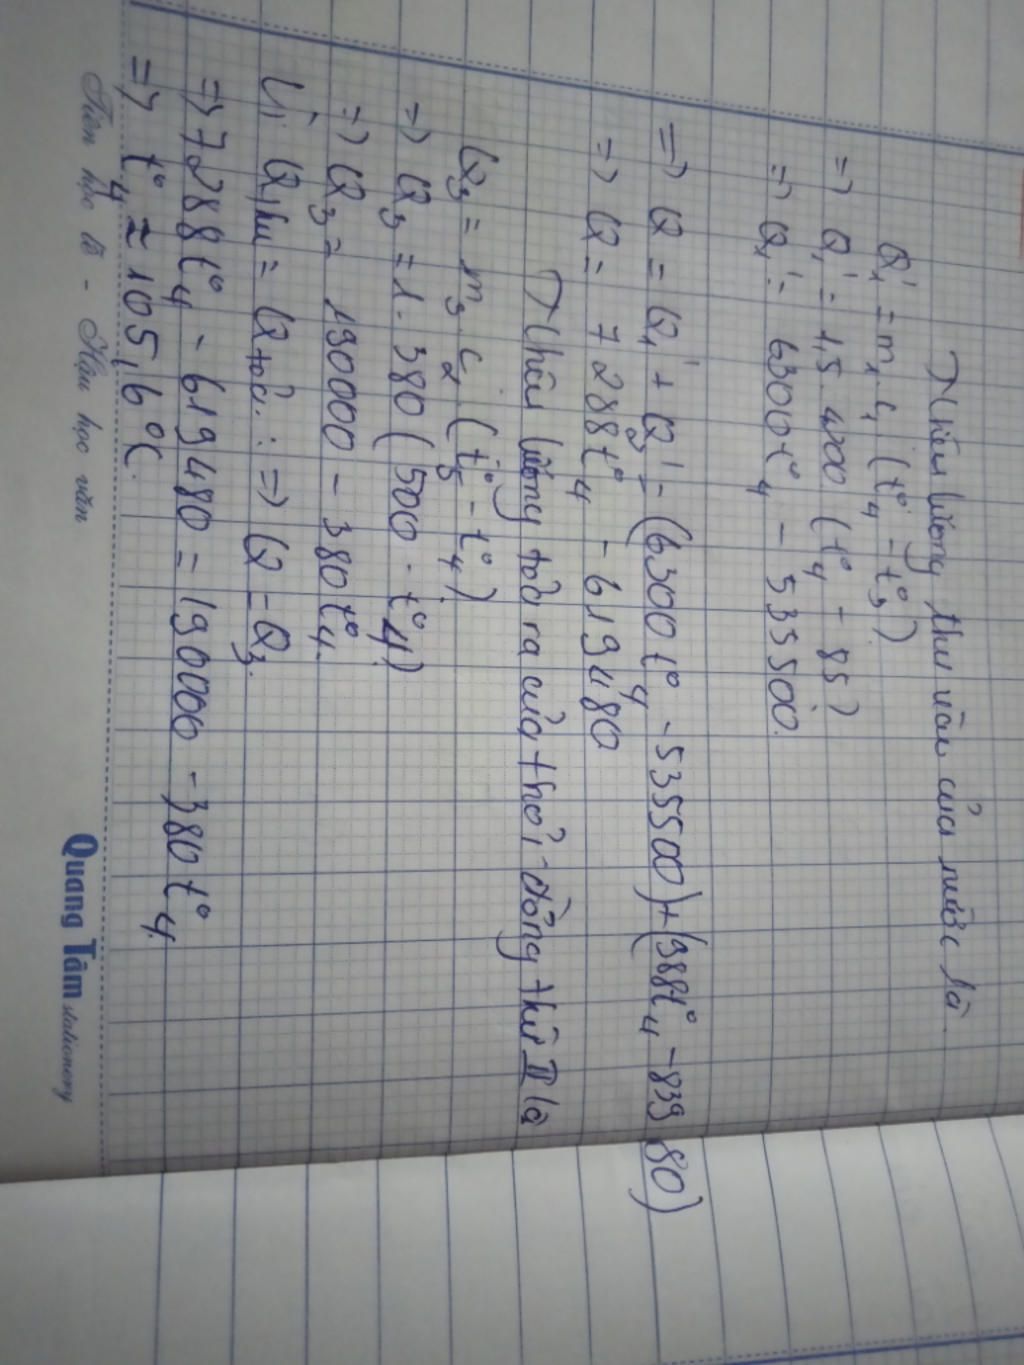 Nhiệt lượng thu vào của nước là
Q₁' = m₁.c₁ (t°₄ - t°₃)
=> Q₁' = 1,5.4200 (t°₄ - 85)
=> Q₁' = 6300t°₄ - 535500.
=> Q = Q₁' + Q₂' = (6300t°₄ - 535500) + (988t°₄ - 83980)
=> Q = 7288t°₄ - 619480
Nhiệt lượng toả ra của thỏi đồng thứ II là
Q₃ = m₃.c₂.(t°₅ - t°₄)
=> Q₃ = 1.380 (500 - t°₄)
=> Q₃ = 190000 - 380t°₄.
Vì Qthu = Qtỏa : => Q = Q₃.
=> 7288t°₄ - 619480 = 190000 - 380t°₄.
=> t°₄ ≈ 105,6°C.
Tiên học lễ - Hậu học văn
Quang Tâm stationery